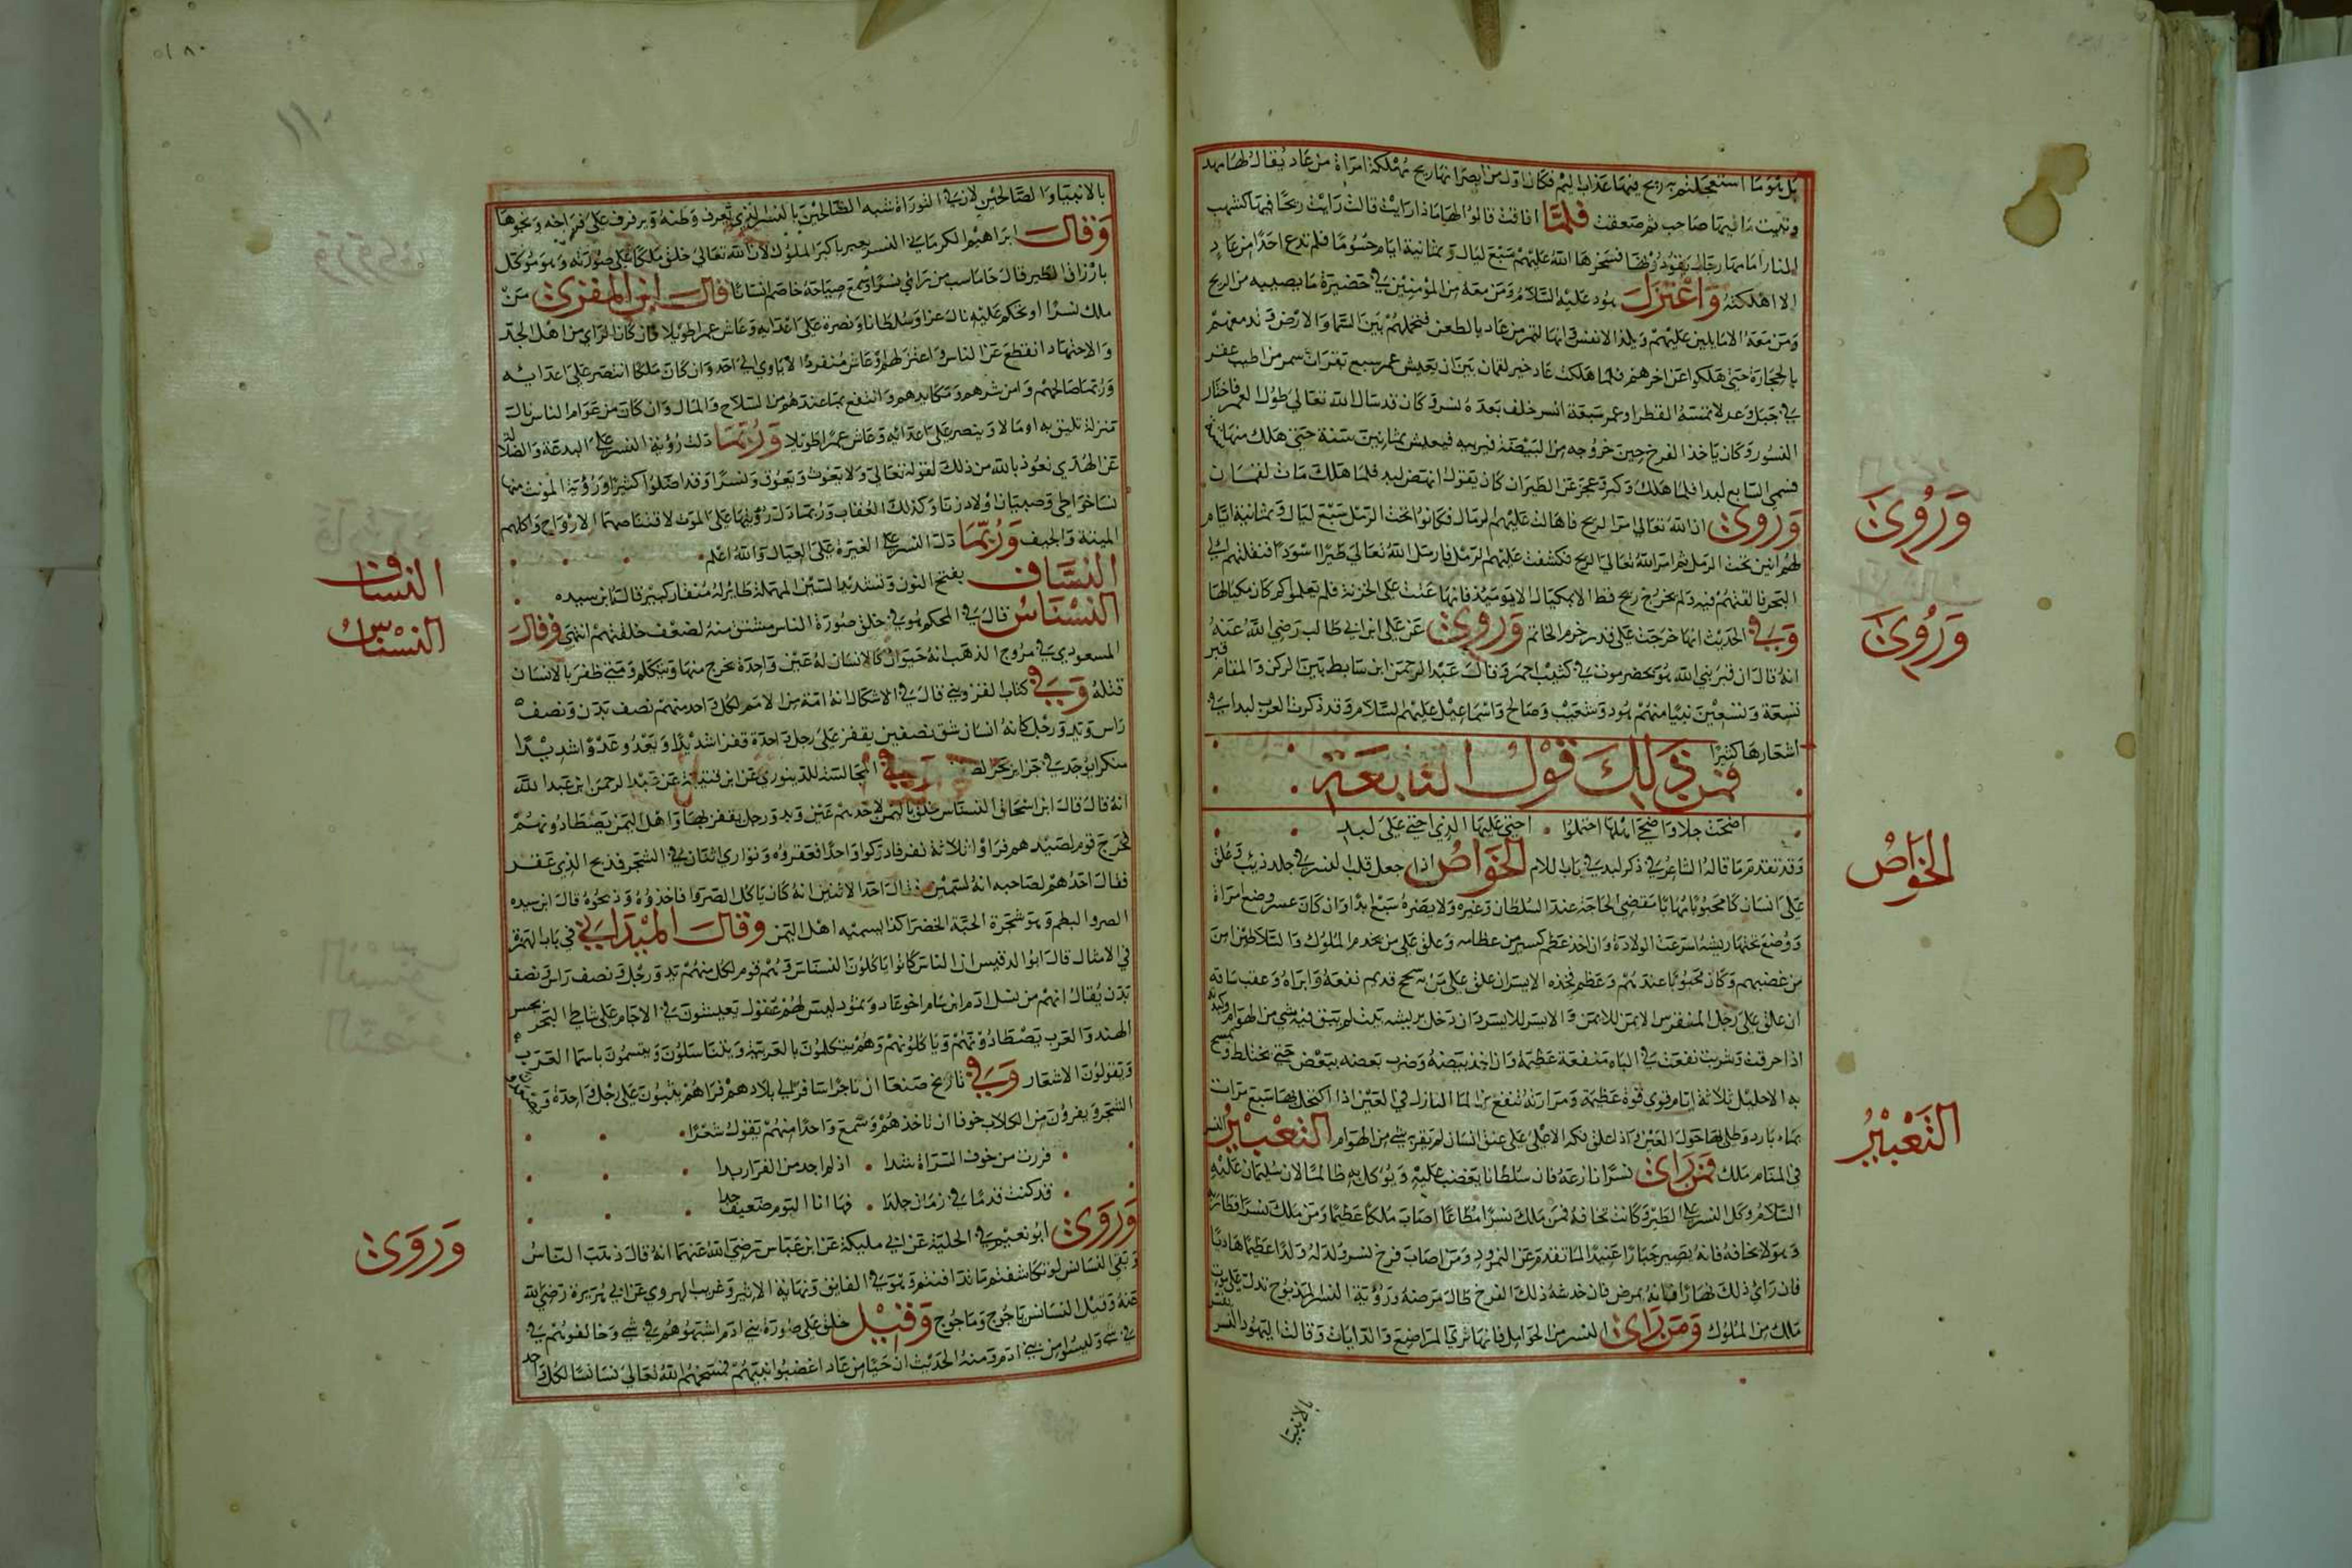 بل هو ما استعجلتم به ريح فيها عذاب اليم فكان اول من ابصر انها ريح مهلكة امراة من عاد يقال لها مهد
صاحت ثم صعقت فلما افاقت قالوا لها ماذا رايت قالت رايت ريحا فيها كشهب
النار امامها رجال يقودونها فسخرها الله عليهم سبع ليال وثمانية ايام حسوما فلم تدع احدا من عاد
الا اهلكته واعتزل هود عليه السلام ومن معه من المؤمنين في حضيرة ما يصيبه من الريح
ومن معه الا ما يلين عليهم ويلذ الانفس وانها لتمر من عاد بالطعن فتحملهم بين السما والارض وتدمغهم
بالحجارة حتى هلكوا عن اخرهم فلما هلكت عاد خير لقمان بين ان يعيش عمر سبع بقرات سمر من اطب عفر
في جبل وعر لا يمسه القطر او عمر سبعة انسر خلف بعده نسر وكان قد سال الله تعالى طول العمر فاختار
النسور وكان ياخذ الفرخ حين خروجه من البيضة فيربيه فيعيش ثمانين سنة حتى هلك منها
فسمى السابع لبدا فلما هلك وكبر وعجز عن الطيران كان يقول انهض لبد فلما هلك مات لقمان
وروى ان الله تعالى امر الريح فاهالت عليهم الرمال فكانوا تحت الرمل سبع ليال وثمانية ايام
لهم انين تحت الرمل ثم امر الله تعالى الريح فكشفت عليهم الرمل فارسل الله تعالى طيرا اسود فنقلتهم الى
البحر فالقتهم فيه ولم يخرج ريح قط الا بمكيال الا يومئذ فانها عتت على الخزنة فلم يعلموا كم كان مكيالها
وفي الحديث انها خرجت على قدر خرم الخاتم وروى عن علي ابن ابي طالب رضي الله عنه
انه قال ان قبر نبي الله هود بحضرموت في كثيب احمر وقال عبد الرحمن ابن سابط بين الركن والمقام قبر
تسعة وتسعين نبيا منهم هود وشعيب وصالح واسماعيل عليهم السلام وقد ذكرت العرب لبدا في
اشعارها كثيرا
فمن ذلك قول النابغة
اضحت خلا واضحى اهلها احتملوا . اخنى عليها الذي اخنى على لبد
وقد تقدم ما قاله الشاعر في ذكر لبد في باب اللام الخواص اذا جعل قلب النسر في جلد ذيب وعلق
على انسان كان محبوبا مهابا مقضي الحاجة عند السلطان وغيره ولا يضره سبع ابدا وان كان عسر وضع امراة
ووضع تحتها ريشه اسرعت الولادة وان اخذ عظم كبير من عظامه وعلق على من يخدم الملوك والسلاطين امن
من غضبهم وكان محبوبا عندهم وعظم فخذه الايسر ان علق على من به سحج قديم نفعه وابراه وعقب ساقه
ان علق على رجل المنقرس الايمن للايمن والايسر للايسر وان دخل بريشه بيت لم يبق فيه شي من الهوام وكبده
اذا حرقت وشربت نفعت في الباه منفعة عظيمة وان اخذ بيضه وضرب بعضه ببعض حتى يختلط ومسح
به الاحليل ثلاثة ايام قوي قوة عظيمة ومرارته تنفع من الما النازل في العين اذا اكتحل بها سبع مرات
بماء بارد وطلي بها حول العين واذا علق فكه الاعلى على عنق انسان لم يقربه شي من الهوام التعبير النسر
في المنام ملك فمن راى نسرا نازعه فان سلطانا يغضب عليه ويوكل به ظالما لان سليمان عليه
السلام وكل النسر على الطير وكانت تخافه فمن ملك نسرا مطاعا اصاب ملكا عظيما ومن ملك نسرا فطار به
وهو لا يخافه فانه يصير جبارا عنيدا لما تقدم عن النمرود ومن اصاب فرخ نسر ولد له ولدا عظيما هاديا
فان راى ذلك نهارا فانه يمرض فان خدشه ذلك الفرخ طال مرضه ورؤية النسر المذبوح تدل على موت
ملك من الملوك ومن راى النسر من الحوامل فانها ترى المراضع والدايات وقالت اليهود النسر يفسر
بالانبيا
وروى
وروى
الخواص
التعبير
بالانبيا والصالحين لان في التوراة شبه الصالحين بالنسر الذي يعرف وطنه ويرفرف على فراخه ونحوها
وقال ابراهيم الكرماني النسر يعبر باكبر الملوك لان الله تعالى خلق ملكا على صورته وهو موكل
بارزاق الطير قال جاماسب من راى نسرا او سمع صياحه خاصم انسانا قال ابن المقري من
ملك نسرا او تحكم عليه نال عزا وسلطانا ونصرة على اعدايه وعاش عمرا طويلا فان كان الراي من اهل الجد
والاجتهاد انقطع عن الناس واعتزلهم وعاش منفردا لا ياوي الى احد وان كان ملكا انتصر على اعدايه
وربما صالحهم وامن شرهم ومكايدهم وانتفع بما عندهم من السلاح والمال وان كان من عوام الناس نال
منزلة تليق به او مالا وينصر على اعدائه وعاش عمرا طويلا وربما دلت رؤية النسر على البدعة والضلالة
عن الهدى نعوذ بالله من ذلك لقوله تعالى ولا يغوث ويعوق ونسرا وقد اضلوا كثيرا ورؤية المونث منها
نسا خواطي وصبيان اولاد زنا وكذلك العقاب وربما دل رؤيتها على الموت لاقتناصهما الارواح واكلهم
الميتة والجيف وربما دل النسر على الغيرة على العيال والله اعلم
النساف بفتح النون وتشديد السين المهملة طاير له منقار كبير قاله ابن سيده
النسناس قال في المحكم هو في خلق صورة الناس مشتق منه لضعف خلقتهم انتهى وقال
المسعودي في مروج الذهب انه حيوان كالانسان له عين واحدة يخرج منها ويتكلم ومتى ظفر بالانسان
قتله وفي كتاب القزويني قال في الاشكال انه امة من الامم لكل واحد منهم نصف بدن ونصف
راس ويد ورجل كانه انسان شق نصفين يقفز على رجل واحدة قفزا شديدا ويعدو عدوا شديدا
منكرا يوجد في جزاير بحر الصين وفي المجالسة للدينوري عن ابن قتيبة عن عبد الرحمن ابن عبد الله
انه قال قال ابن اسحاق النسناس خلق باليمن لاحدهم عين ويد ورجل يقفز بها واهل اليمن يصطادونهم
فخرج قوم لصيدهم فراوا ثلاثة نفر فادركوا واحدا فعقروه وتوارى اثنان في الشجر فذبح الذي عقر
فقال احدهم لصاحبه انه لسمين فقال احد الاثنين انه كان ياكل الضرو فاخذوه وذبحوه قال ابن سيده
الضرو البطم وهو شجرة الحبة الخضرا كذا يسميه اهل اليمن وقال الميداني في باب الهمزة
في الامثال قال ابو الدقيس ان الناس كانوا ياكلون النسناس وهم قوم لكل منهم يد ورجل ونصف راس ونصف
بدن يقال انهم من نسل ادم ابن سام اخو عاد وثمود ليس لهم عقول يعيشون في الاجام على شاطئ البحر
الهند والعرب يصطادونهم وياكلونهم وهم يتكلمون بالعربية ويتناسلون ويتسمون باسما العرب
ويقولون الاشعار وفي تاريخ صنعا ان تاجرا سافر الى بلادهم فراهم يثبون على رجل واحدة
الشجر ويفرون من الكلاب خوفا ان تاخذهم وسمع واحدا منهم يقول شعرا
فررت من خوف الشراة شدا . اذ لم اجد من الفرار بدا
قد كنت قدما في زمان جلدا . فها انا اليوم ضعيف جدا
وروى ابو نعيم في الحلية عن ابي مليكة عن ابن عباس رضي الله عنهما انه قال ذهب الناس
وبقي النسناس لو تكاشفتم ما تدافنتم وهو في الفايق ونهاية الاثير وغريب الهروي عن ابي هريرة رضي الله
عنه وقيل النسانس ياجوج وماجوج وقيل خلق على صورة بني ادم اشبهوهم في شي وخالفوهم في
شي وليسوا من بني ادم ومنه الحديث ان حيا من عاد اغضبوا نبيهم فمسخهم الله تعالى نسناسا لكل واحد
النساف
النسناس
وروى